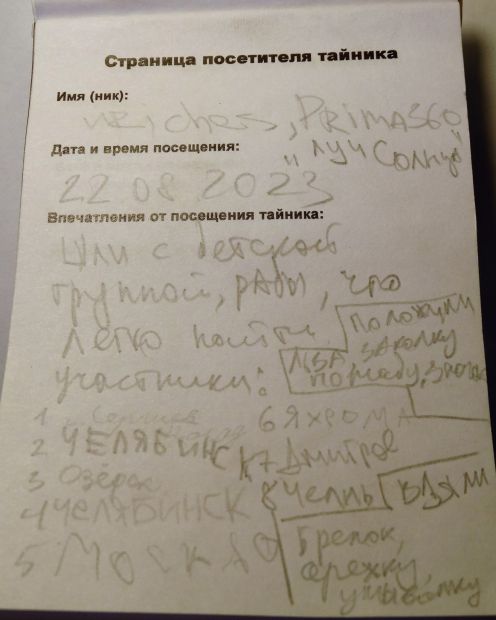 Страница посетителя тайника
Имя (ник):
, PRIMA360
Дата и время посещения:
"Луч Солнца"
22 08 2023
Впечатления от посещения тайника:
Шли с детской
группой, рады, что
легко найти
Положили
заколку
участники:
1
6 Яхрома
2 ЧЕЛЯБИНСК
7 Дмитров
3 Озёрск
4 ЧЕЛЯБИНСК
8 Челны
Взяли
5 МОСКВА
Брелок,